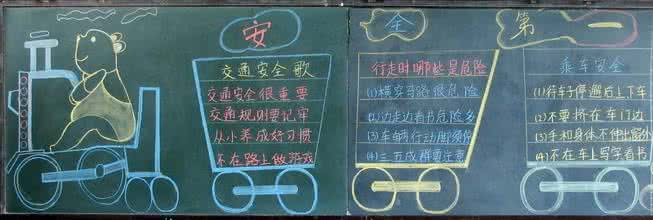 安全第一
交通安全歌
交通安全很重要
交通规则要记牢
从小养成好习惯
不在路上做游戏
行走时哪些是危险
(1)横穿马路很危险
(2)边走边看书危险多
(3)车辆行动脚须停
(4)三五成群要注意
乘车安全
(1)待车子停稳后上下车
(2)不要挤在车门边
(3)手和身体不伸出窗外
(4)不在车上写字看书